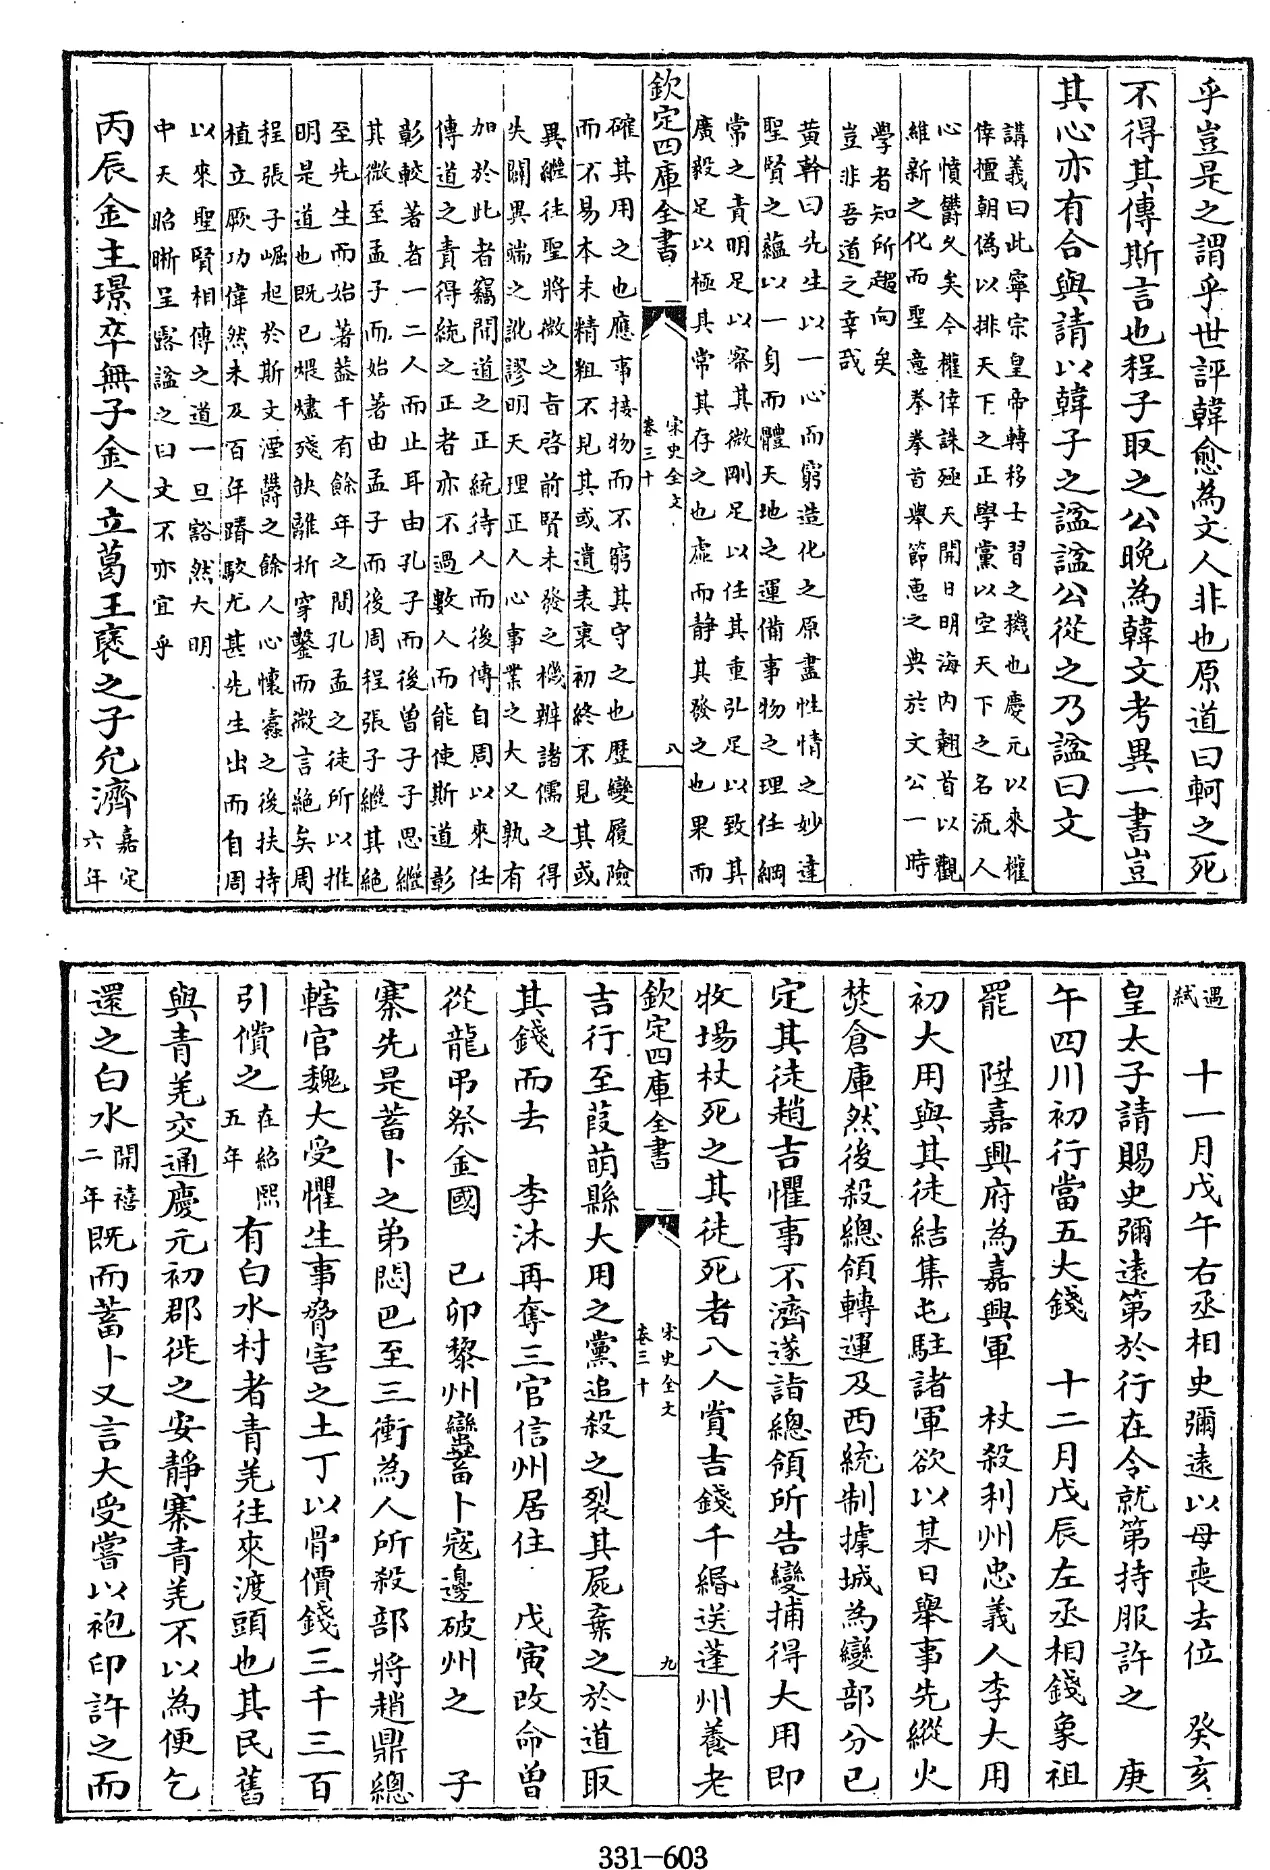 乎豈是之謂乎世評韓愈為文人非也原道曰軻之死
不得其傳斯言也程子取之公晚為韓文考異一書豈
其心亦有合與請以韓子之諡諡公從之乃諡曰文
講義曰此寧宗皇帝轉移士習之機也慶元以來權
倖擅朝偽以排天下之正學黨以空天下之名流人
心憤鬱久矣今權倖誅殛天開日明海內翹首以觀
維新之化而聖意拳拳首舉節惠之典於文公一時
學者知所趨向矣
豈非吾道之幸哉
黃幹曰先生以一心而窮造化之原盡性情之妙達
聖賢之蘊以一身而體天地之運備事物之理任綱
常之責明足以察其微剛足以任其重弘足以致其
廣毅足以極其常其存之也虛而静其發之也果而
欽定四庫全書
宋史全文
卷三十
八
確其用之也應事接物而不窮其守之也歷變履險
而不易本末精粗不見其或遺表裏初終不見其或
異繼往聖將微之旨啓前賢未發之機辨諸儒之得
失闢異端之訛謬明天理正人心事業之大又孰有
加於此者竊聞道之正統待人而後傳自周以來任
傳道之責得統之正者亦不過數人而能使斯道彰
彰較著者一二人而止耳由孔子而後曾子子思繼
其微至孟子而始著由孟子而後周程張子繼其絕
至先生而始著蓋千有餘年之間孔孟之徒所以推
明是道也既已煨燼殘缺離析穿鑿而微言絕矣周
程張子崛起於斯文湮鬱之餘人心懷蠹之後扶持
植立厥功偉然未及百年踳駁尤甚先生出而自周
以來聖賢相傳之道一旦豁然大明
中天昭晣呈露諡之曰文不亦宜乎
丙辰金主璟卒無子金人立葛王褎之子允濟嘉定
六年
遇
弒
十一月戊午右丞相史彌遠以母喪去位 癸亥
皇太子請賜史彌遠第於行在令就第持服許之 庚
午四川初行當五大錢 十二月戊辰左丞相錢象祖
罷 陞嘉興府為嘉興軍 杖殺利州忠義人李大用
初大用與其徒結集屯駐諸軍欲以某日舉事先縱火
焚倉庫然後殺總領轉運及西統制據城為變部分已
定其徒趙吉懼事不濟遂詣總領所告變捕得大用即
牧場杖死之其徒死者八人賞吉錢千緡送蓬州養老
欽定四庫全書
宋史全文
卷三十
九
吉行至葭萌縣大用之黨追殺之裂其屍棄之於道取
其錢而去 李沐再奪三官信州居住 戊寅改命曾
從龍弔祭金國 己卯黎州蠻蓄卜寇邊破州之 子
寨先是蓄卜之弟悶巴至三衝為人所殺部將趙鼎總
轄官魏大受懼生事脅害之土丁以骨價錢三千三百
引償之在紹熙
五年有白水村者青羌往來渡頭也其民舊
與青羌交通慶元初郡徙之安靜寨青羌不以為便乞
還之白水開禧
二年既而蓄卜又言大受嘗以袍印許之而
331-603